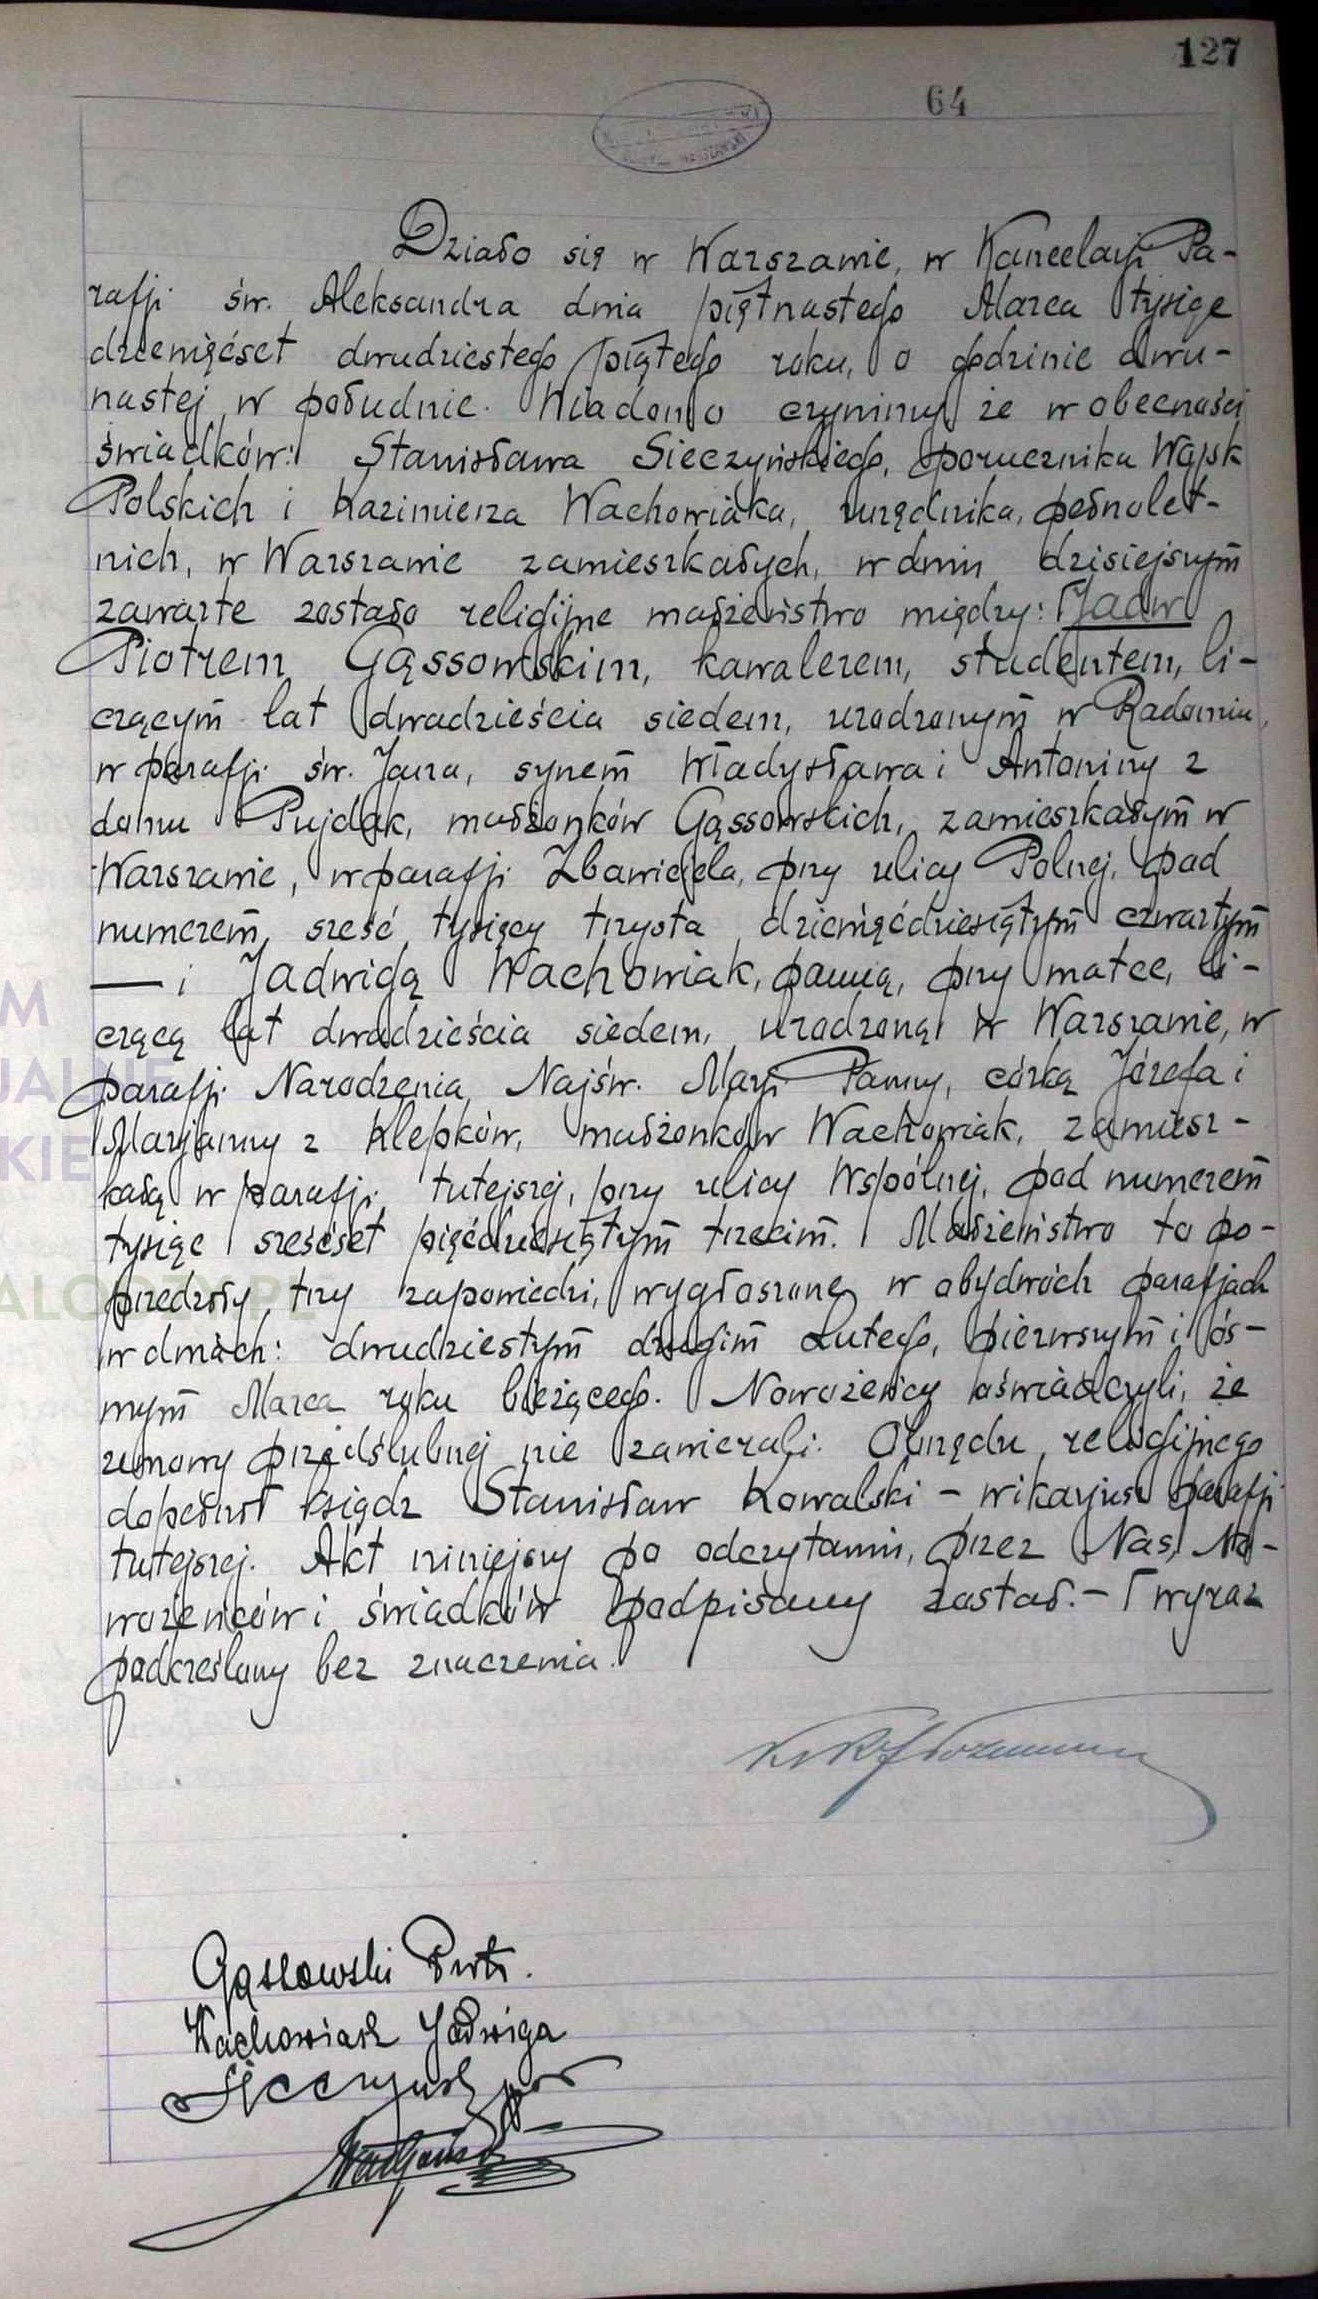 127
64
Działo się w Warszawie, w Kancelarji Pa-
rafji św. Aleksandra dnia piętnastego Marca tysiąc
dziewięćset dwudziestego piątego roku, o godzinie dwu-
nastej w południe. Wiadomo czynimy że w obecności
świadków: Stanisława Sieczyńskiego, porucznika Wojsk
Polskich i Kazimierza Wachowiaka, urzędnika, pełnolet-
nich, w Warszawie zamieszkałych, w dniu dzisiejszym
zawarte zostało religijne małżeństwo między: Jadw
Piotrem Gąssowskim, kawalerem, studentem, li-
czącym lat dwadzieścia siedem, urodzonym w Radomiu,
w parafji św. Jana, synem Władysława i Antoniny z
domu Pujdak, małżonków Gąssowskich, zamieszkałym w
Warszawie, w parafji Zbawiciela, przy ulicy Polnej, pod
numerem sześć tysięcy trzysta dziewięćdziesiątym czwartym
— i Jadwigą Wachowiak, panną, przy matce, li-
czącą lat dwadzieścia siedem, urodzoną w Warszawie, w
parafji Narodzenia Najśw. Maryi Panny, córką Józefa i
Marjanny z Klepków, małżonków Wachowiak, zamiesz-
kałą w parafji tutejszej, przy ulicy Wspólnej, pod numerem
tysiąc sześćset pięćdziesiątym trzecim. Małżeństwo to po-
przedziły trzy zapowiedzi, wygłoszone w obydwóch parafjach
w dniach: dwudziestym drugim Lutego, pierwszym i ós-
mym Marca roku bieżącego. Nowożeńcy oświadczyli, że
umowy przedślubnej nie zawierali. Obrzędu religijnego
dopełnił ksiądz Stanisław Kowalski – wikaryusz parafji
tutejszej. Akt niniejszy po odczytaniu, przez Nas, No-
wożeńców i świadków podpisany został. – 1 wyraz
podkreślony bez znaczenia.
Gąssowski Piotr.
Wachowiak Jadwiga